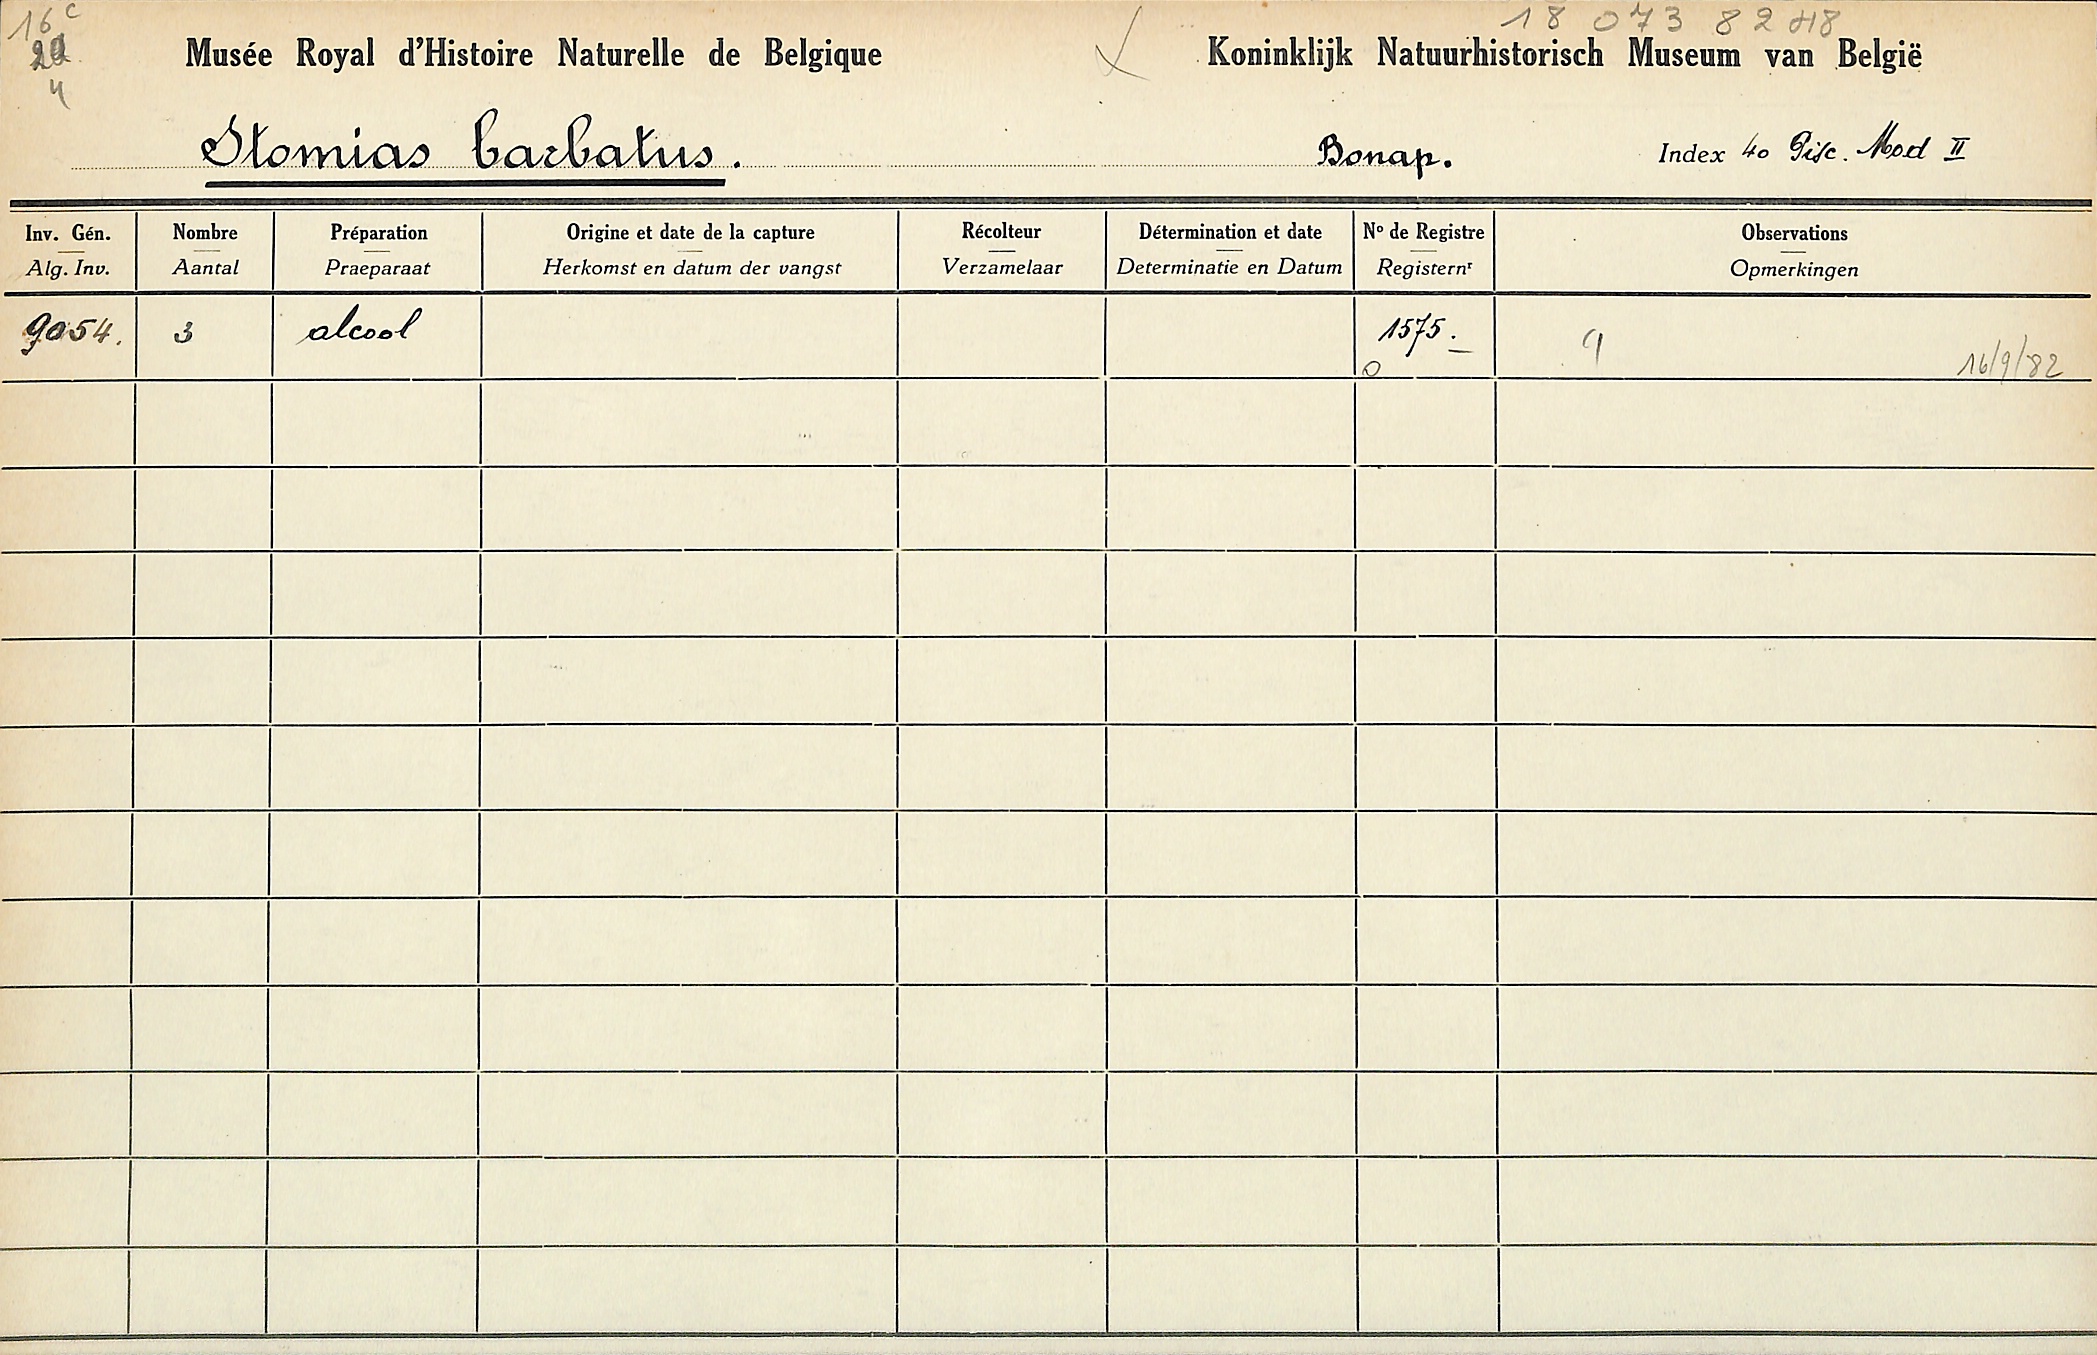 16 c
18 073 82 48
4
Musée Royal d'Histoire Naturelle de Belgique
Koninklijk Natuurhistorisch Museum van België
Stomias barbatus. Bonap. Index 40 Pisc. Mod II
Inv. Gén. Nombre Préparation Origine et date de la capture Récolteur Détermination et date Nº de Registre Observations
Alg. Inv. Aantal Praeparaat Herkomst en datum der vangst Verzamelaar Determinatie en Datum Registernʳ Opmerkingen
9054. 3 alcool 1575. 9
0 16/9/82